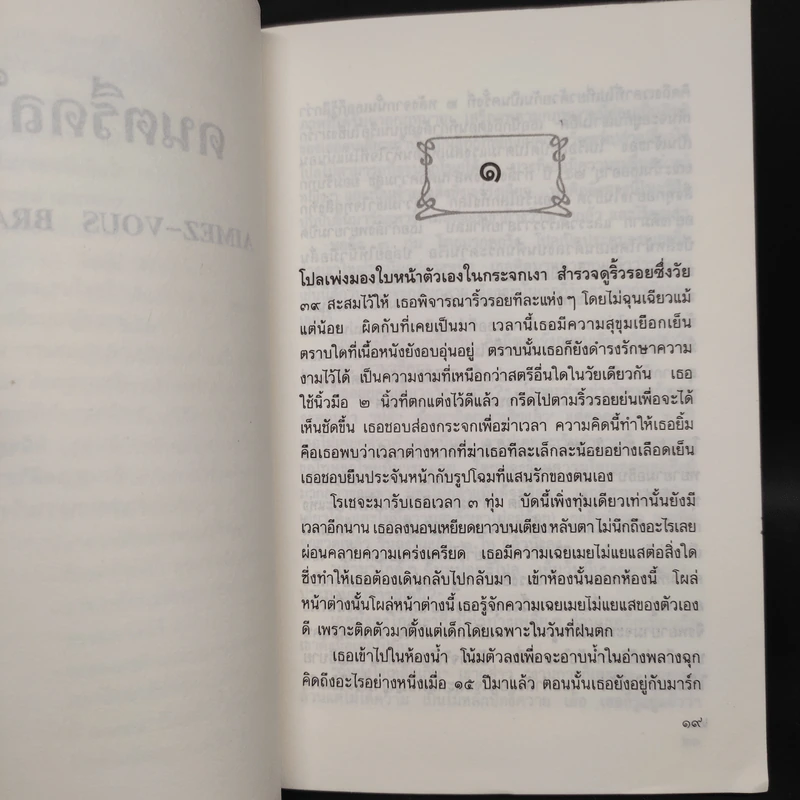 ๑
โปลเพ่งมองใบหน้าตัวเองในกระจกเงา สำรวจดูริ้วรอยซึ่งวัย
๓๙ สะสมไว้ให้ เธอพิจารณาริ้วรอยทีละแห่ง ๆ โดยไม่ฉุนเฉียวแม้
แต่น้อย ผิดกับที่เคยเป็นมา เวลานี้เธอมีความสุขุมเยือกเย็น
ตราบใดที่เนื้อหนังยังอบอุ่นอยู่ ตราบนั้นเธอก็ยังดำรงรักษาความ
งามไว้ได้ เป็นความงามที่เหนือกว่าสตรีอื่นใดในวัยเดียวกัน เธอ
ใช้นิ้วมือ ๒ นิ้วที่ตกแต่งไว้ดีแล้ว กรีดไปตามริ้วรอยย่นเพื่อจะได้
เห็นชัดขึ้น เธอชอบส่องกระจกเพื่อฆ่าเวลา ความคิดนี้ทำให้เธอยิ้ม
คือเธอพบว่าเวลาต่างหากที่ฆ่าเธอทีละเล็กละน้อยอย่างเลือดเย็น
เธอชอบยืนประจันหน้ากับรูปโฉมที่แสนรักของตนเอง
โรเชจะมารับเธอเวลา ๓ ทุ่ม บัดนี้เพิ่งทุ่มเดียวเท่านั้นยังมี
เวลาอีกนาน เธอลงนอนเหยียดยาวบนเตียง หลับตา ไม่นึกถึงอะไรเลย
ผ่อนคลายความเคร่งเครียด เธอมีความเฉยเมยไม่แยแสต่อสิ่งใด
ซึ่งทำให้เธอต้องเดินกลับไปกลับมา เข้าห้องนั้นออกห้องนี้ โผล่
หน้าต่างนั้นโผล่หน้าต่างนี้ เธอรู้จักความเฉยเมยไม่แยแสของตัวเอง
ดี เพราะติดตัวมาตั้งแต่เด็กโดยเฉพาะในวันที่ฝนตก
เธอเข้าไปในห้องน้ำ โน้มตัวลงเพื่อจะอาบน้ำในอ่างพลางฉุก
คิดถึงอะไรอย่างหนึ่งเมื่อ ๑๕ ปีมาแล้ว ตอนนั้นเธอยังอยู่กับมาร์ก
๑๙